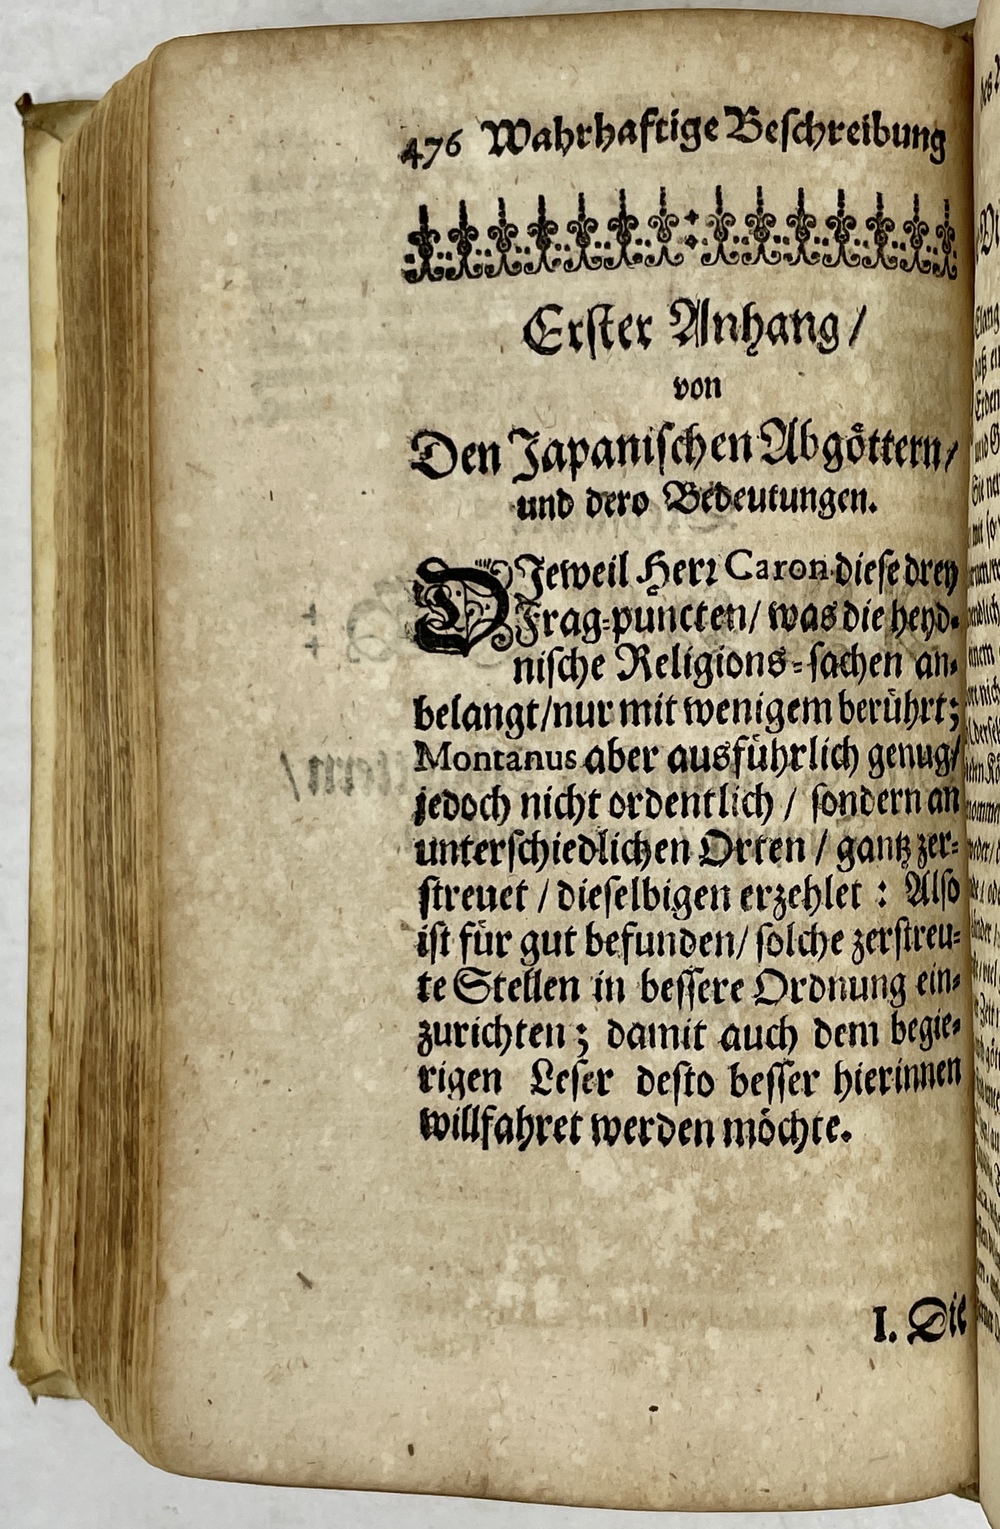 476 Wahrhaftige Beschreibung
Erster Anhang /
von
Den Japanischen Abgöttern /
und dero Bedeutungen.
DJeweil Herr Caron diese drey
Frag-puncten / was die heyd-
nische Religions-sachen an-
belangt / nur mit wenigem berührt;
Montanus aber ausführlich genug /
jedoch nicht ordentlich / sondern an
unterschiedlichen Orten / gantz zer-
streuet / dieselbigen erzehlet : Also
ist für gut befunden / solche zerstreu-
te Stellen in bessere Ordnung ein-
zurichten ; damit auch dem begie-
rigen Leser desto besser hierinnen
willfahret werden möchte.
I. Die